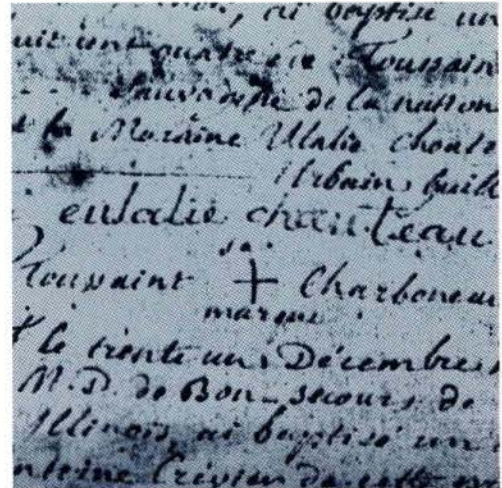 ai baptisé un
quatre né Toussain
Sauvagesse de la nation
la Maraine Ulalie Choute
Urbain Guill
eulalie chauteau
sa
Toussaint + Charboneau
marque
le trente un Décembre,
N. D. de Bon-secours de
Illinois, ai baptisé un
Antoine Crévier de cette